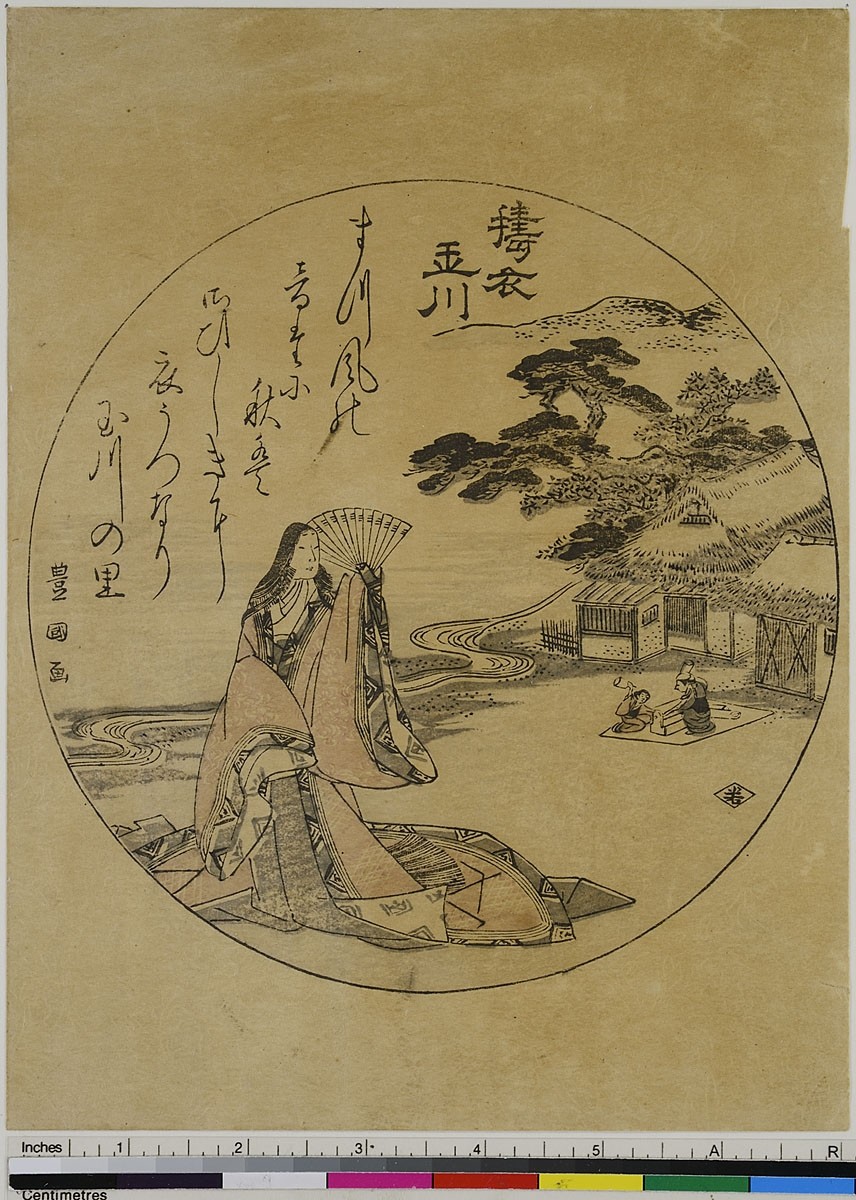 擣衣
玉川
まつ風の
音たに
秋は
さひしきに
衣うつなり
玉川の里
豊國画
Inches 1 2 3 4 5 A R
Centimetres